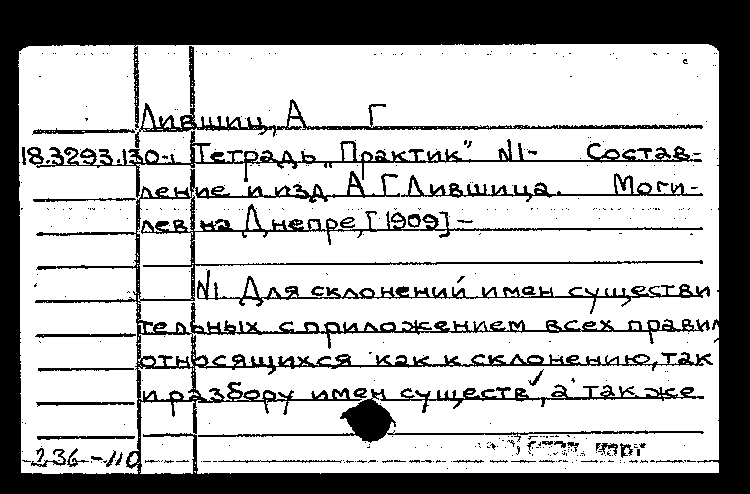 Лившиц, А Г
18.3293.130-1 Тетрадь „Практик" N1- Состав-
ление и изд. А.Г.Лившица. Моги-
лев на Днепре, [1909] -
N1. Для склонений имен существи
тельных с приложением всех правил
относящихся как к склонению, так
и разбору имен существ, а также
236-110
карт